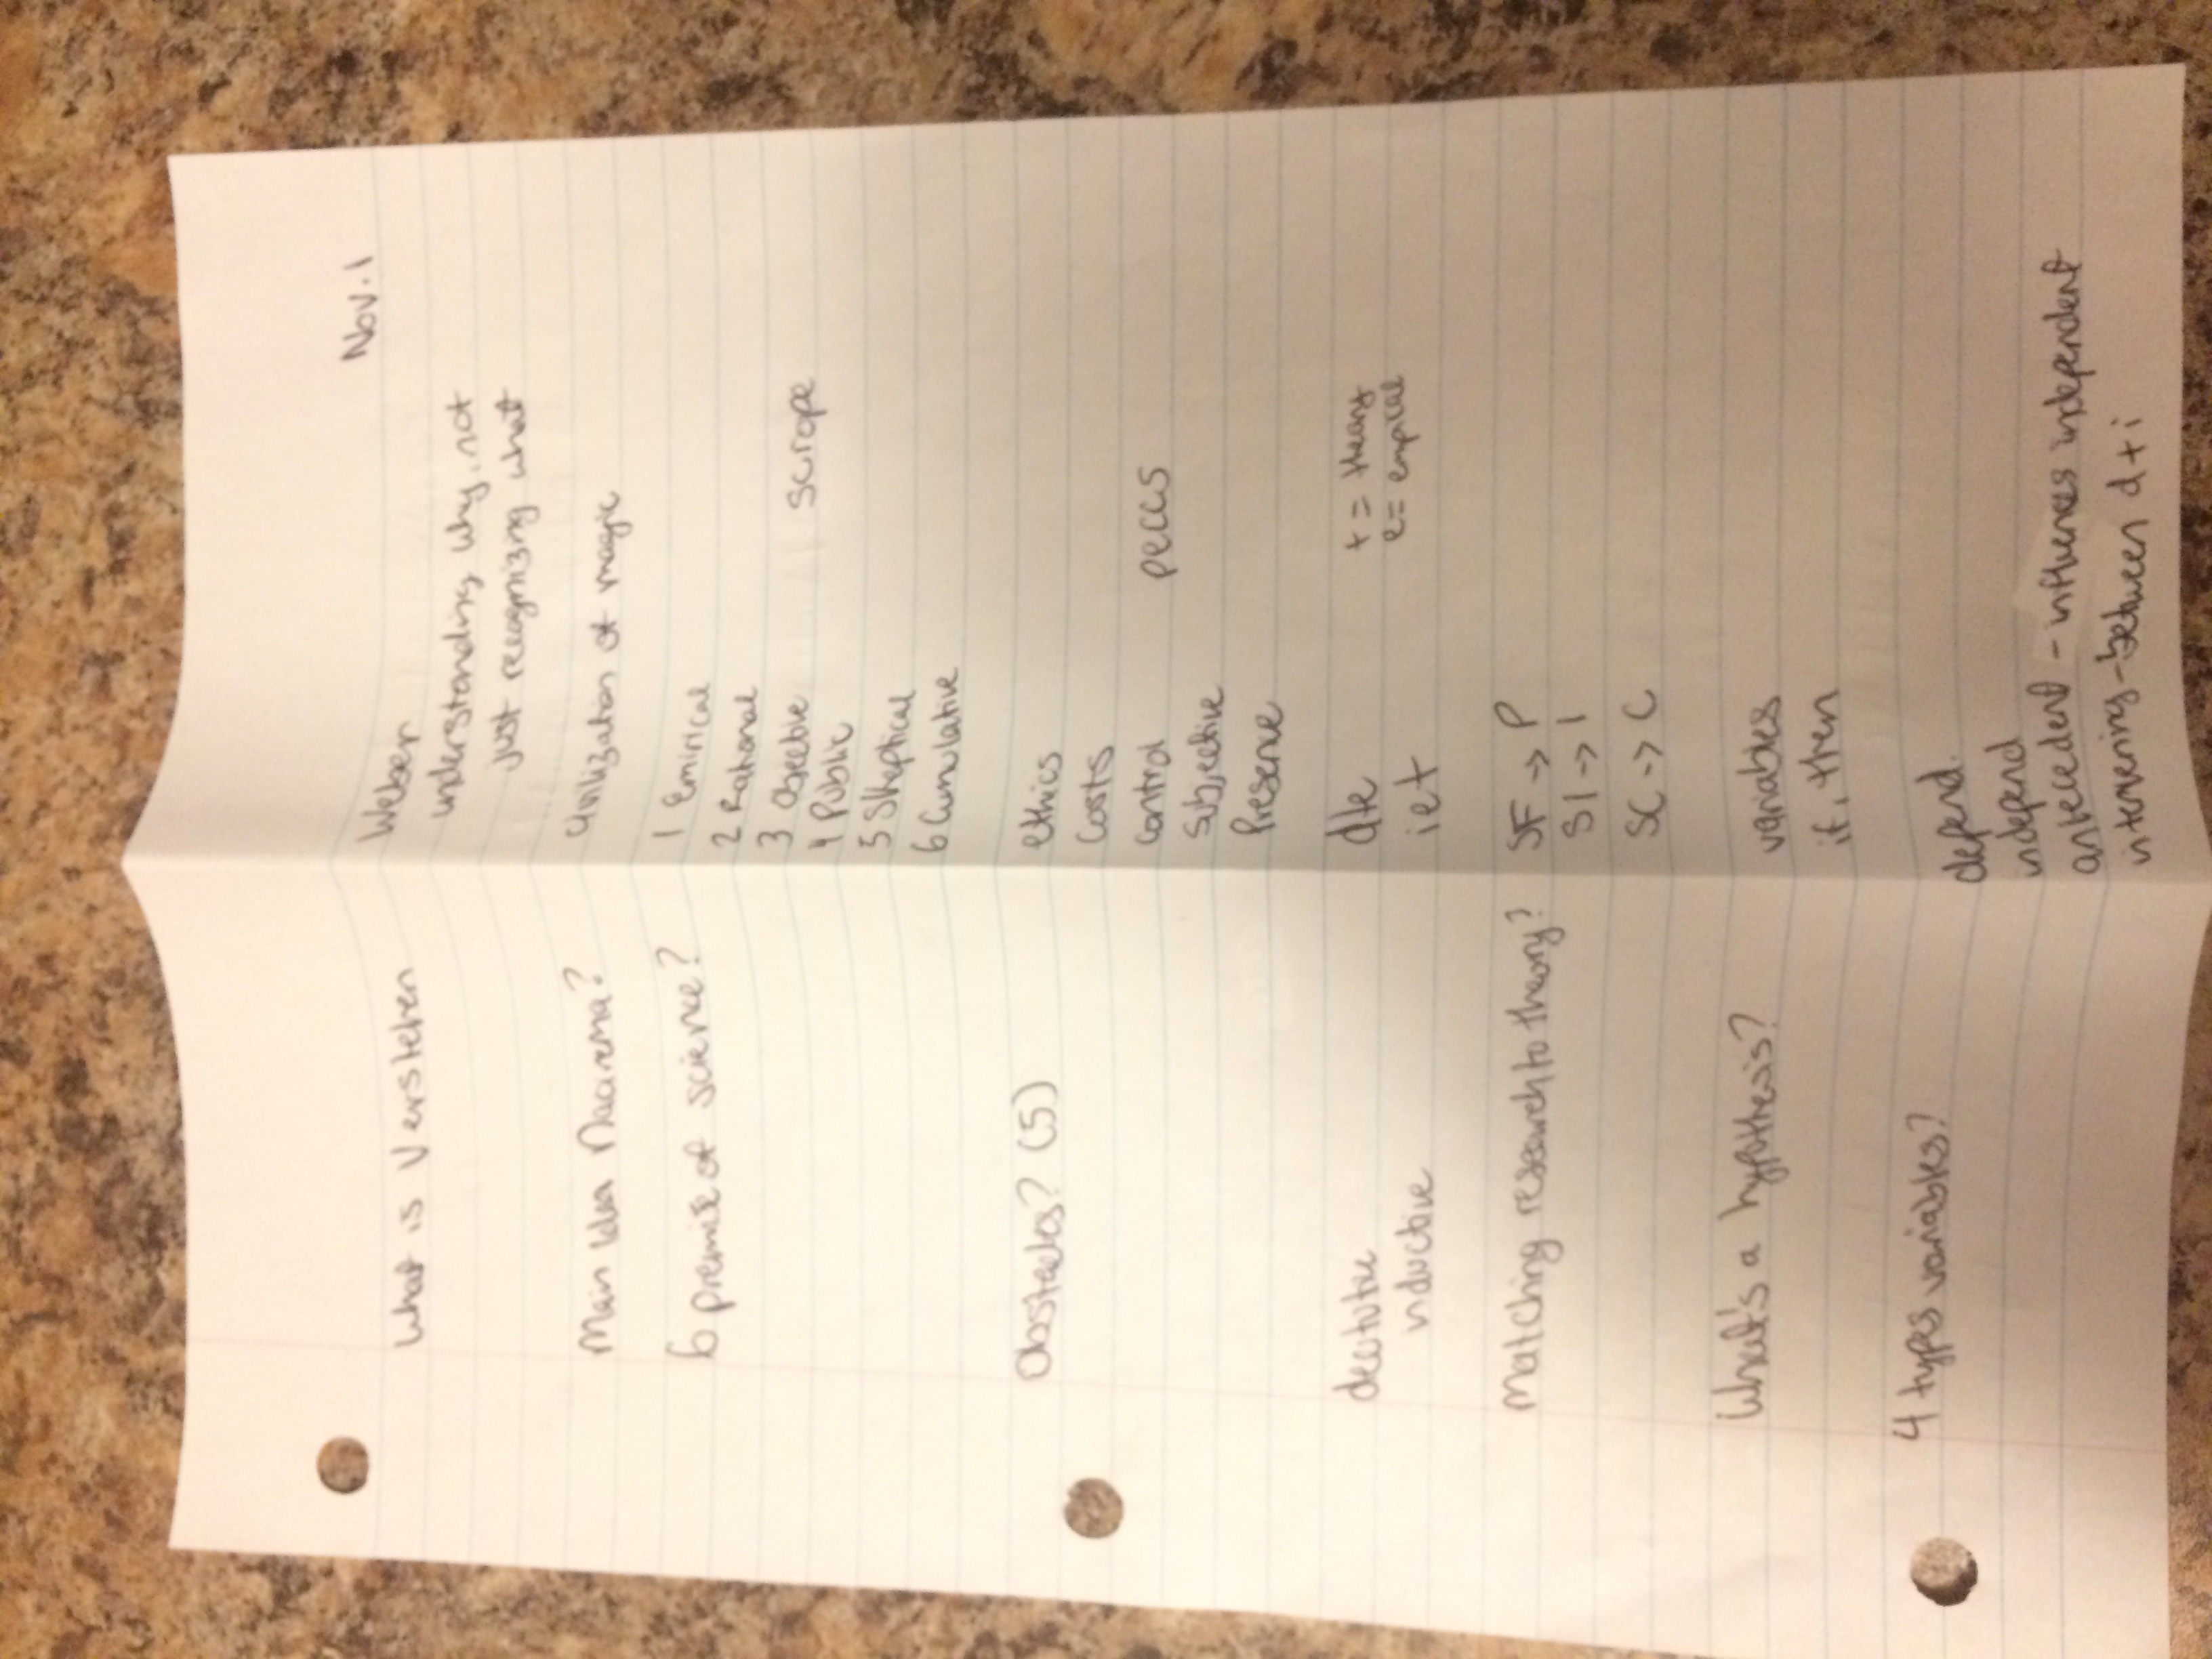 Nov. 1
What is Verstehen Weber
understanding why, not
just recognizing what
Main idea Nacirema? utilization of magic
6 premise of science? 1 Emirical
2 Rational
3 Objective
4 Public scrope
5 Skeptical
6 Cumulative
Obstacles? (5) ethics
Costs
Control peccs
Subjective
Presence
deductive dte t = theory
inductive iet e = empirical
Matching research to theory? SF -> P
SI -> I
SC -> C
What's a hypothesis? variables
if, then
4 types variables? depend.
independ
antecedent - influences independent
intervening - between d + i